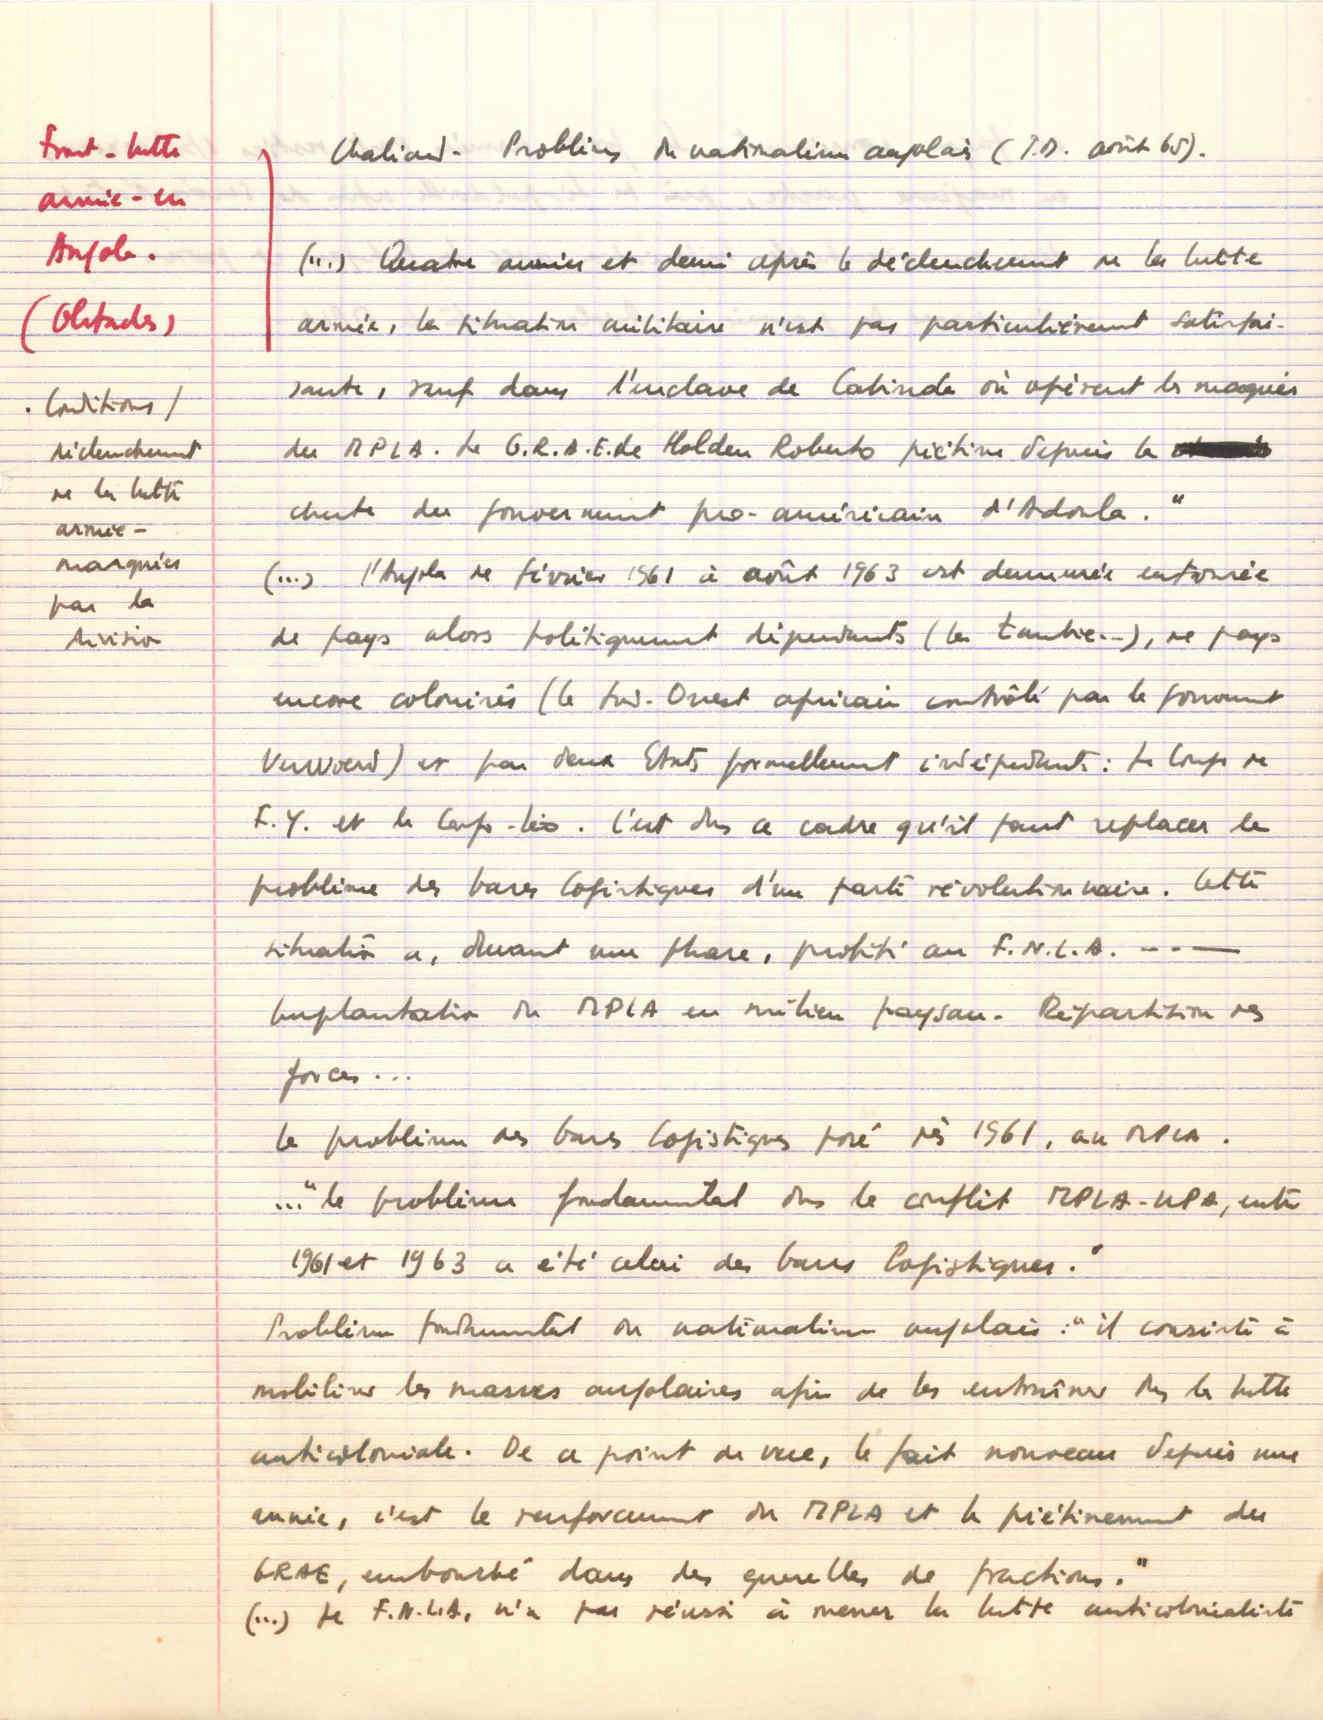 Front - lutte
armée - en
Angola.
(Obstacles)
. Conditions /
déclenchement
de la lutte
armée -
marquées
par la
division
Chaliand - Problèmes du nationalisme angolais (T.D. août 65).
(...) Quatre années et demi après le déclenchement de la lutte
armée, la situation militaire n'est pas particulièrement satisfai-
sante, sauf dans l'enclave de Cabinda où opèrent les maquis
du MPLA. Le G.R.A.E. de Holden Roberto piétine depuis la
chute du gouvernement pro-américain d'Adoula."
(...) l'Angola de février 1961 à août 1963 est demeurée entourée
de pays alors politiquement dépendants (la Zambie...), de pays
encore colonisés (le Sud-Ouest africain contrôlé par le gouvernement
Verwoerd) et par deux Etats formellement indépendants : Le Congo de
F.Y. et le Congo-Léo. C'est dans ce cadre qu'il faut replacer le
problème des bases logistiques d'un parti révolutionnaire. Cette
situation a, durant une phase, profité au F.N.L.A. ---
Implantation du MPLA en milieu paysan - Répartition des
forces...
Le problème des bases logistiques posé dès 1961, au MPLA.
..."le problème fondamental dans le conflit MPLA-UPA, entre
1961 et 1963 a été celui des bases logistiques."
Problème fondamental du nationalisme angolais : "il consiste à
mobiliser les masses angolaises afin de les entraîner dans la lutte
anticoloniale. De ce point de vue, le fait nouveau depuis une
année, c'est le renforcement du MPLA et le piétinement du
GRAE, embourbé dans des querelles de fractions."
(...) Le F.N.L.A. n'a pas réussi à mener la lutte anticolonialiste